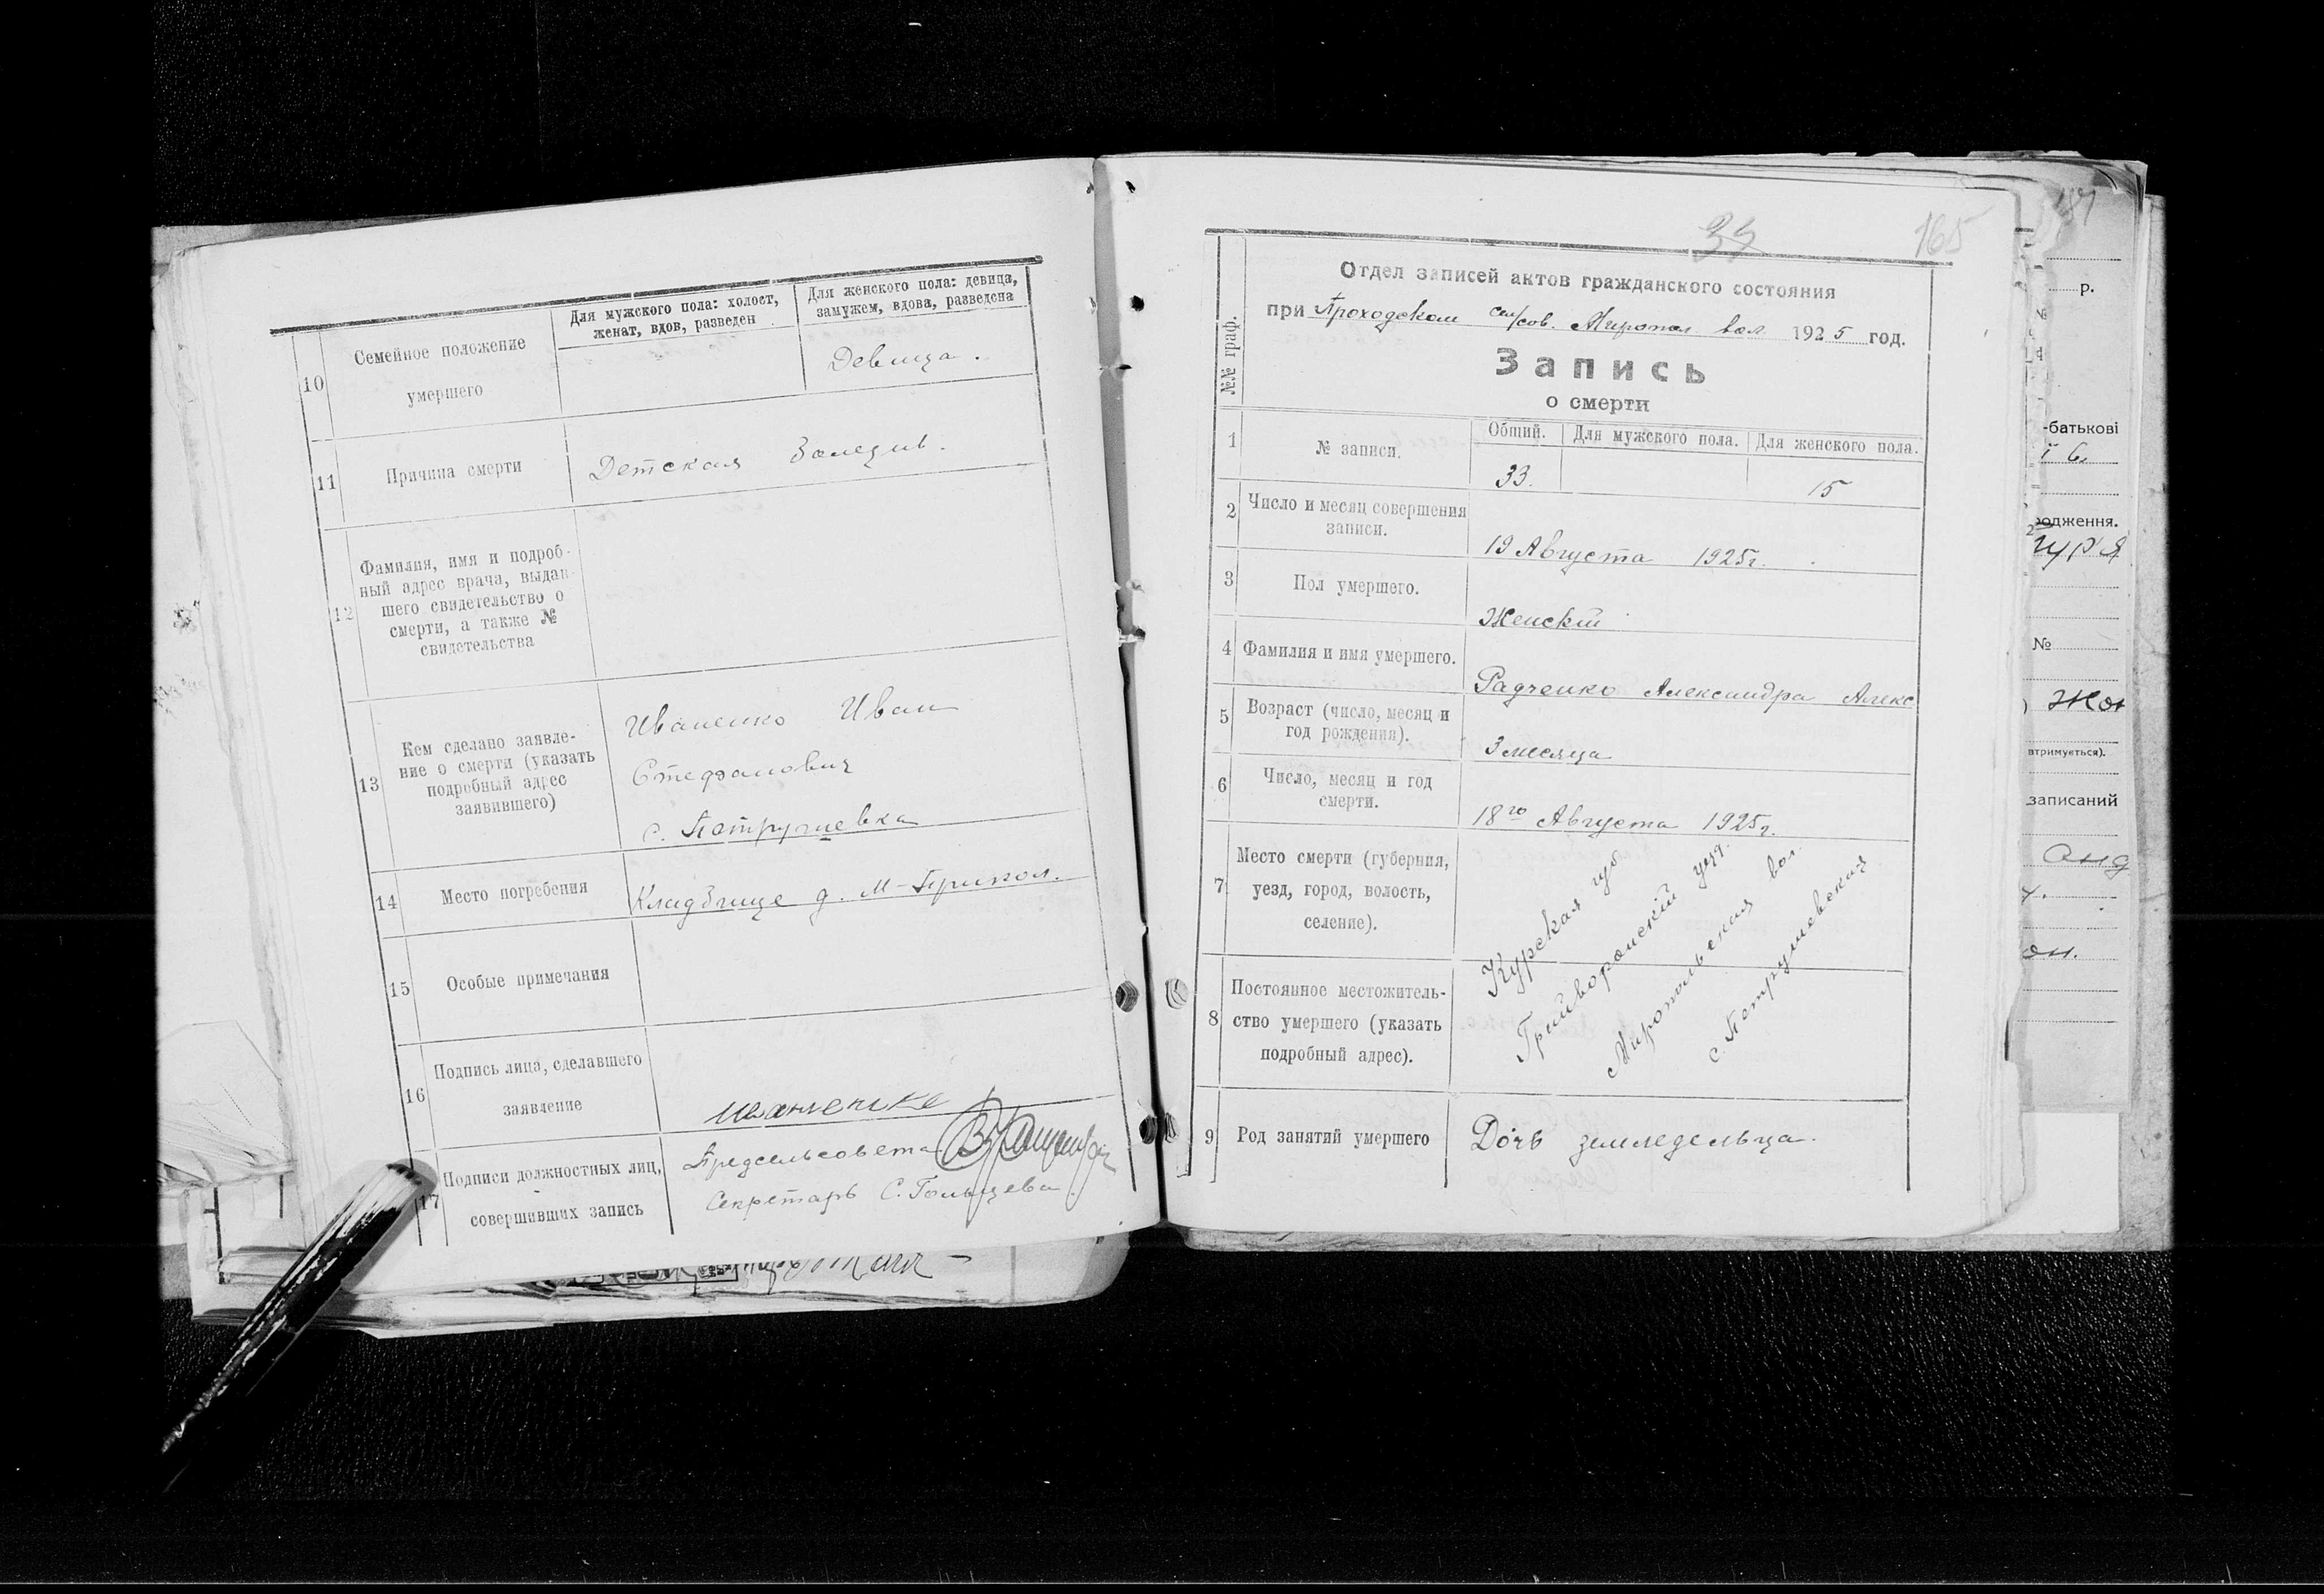 10
Семейное положение
умершего
Для мужского пола: холост,
женат, вдов, разведен
Для женского пола: девица,
замужем, вдова, разведена
Девица.
11
Причина смерти
Детская Болезнь.
12
Фамилия, имя и подроб-
ный адрес врача, выдав-
шего свидетельство о
смерти, а также №
свидетельства
13
Кем сделано заявле-
ние о смерти (указать
подробный адрес
заявившего)
Иваненко Иван
Стефанович
с. Петрушевка
14
Место погребения
Кладбище д. М-Прикол.
15
Особые примечания
16
Подпись лица, сделавшего
заявление
17
Подписи должностных лиц,
совершивших запись
Предсельсовета
Секретарь С. Гольцева
39
165
№№ граф.
Отдел записей актов гражданского состояния
при Проходском сел/сов. Миропол вол. 1925 год.
Запись
о смерти
1
№ записи.
Общий.
Для мужского пола.
Для женского пола.
33.
15
2
Число и месяц совершения
записи.
19 Августа 1925г.
3
Пол умершего.
Женский
4
Фамилия и имя умершего.
Радченко Александра Алекс
5
Возраст (число, месяц и
год рождения).
3 месяца
6
Число, месяц и год
смерти.
18го Августа 1925г.
7
Место смерти (губерния,
уезд, город, волость,
селение).
8
Постоянное местожитель-
ство умершего (указать
подробный адрес).
Курская губ
Грайворонский уезд.
Миропольская вол.
с. Петрушевская
9
Род занятий умершего
Дочь земледельца.
р.
№
-батькові
одження.
№
втримується).
записаний